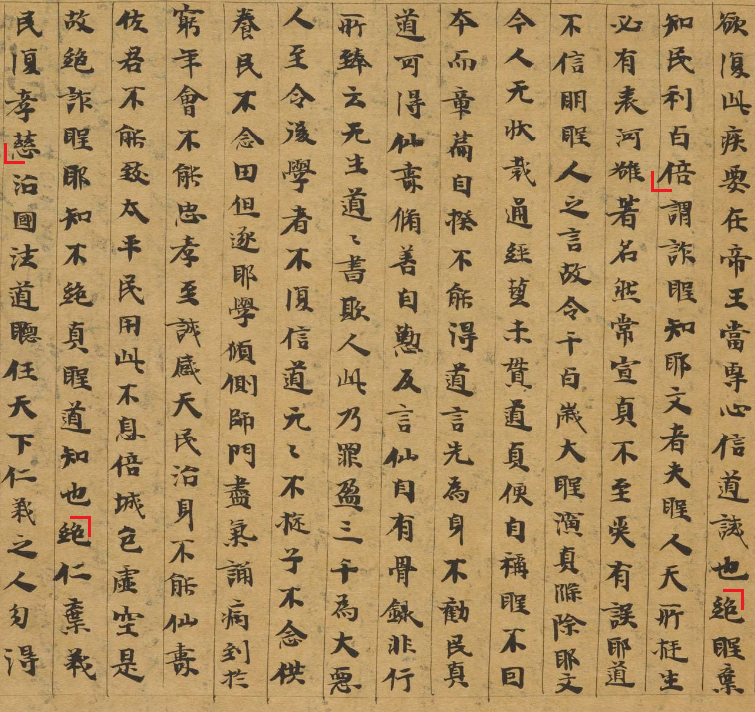 欲復此疾要在帝王當專心信道誡也絕聖棄
知民利百倍謂詐聖知耶文者夫聖人天所挺生
必有表河雒著名然常宣真不至受有誤耶道
不信明聖人之言故令千百歲大聖演真滌除耶文
今人无狀裁通經藝未貫道真便自稱聖不因
本而章篇自揆不能得道言先為身不勸民真
道可得仙壽脩善自懃反言仙自有骨錄非行
所臻云无生道〻書欺人此乃罪盈三千為大惡
人至令後學者不復信道元〻不旋子不念供
養民不念田但逐耶學傾側師門盡氣誦病到於
窮年會不能忠孝至誠感天民治身不能仙壽
佐君不能致太平民用此不息倍城邑虛空是
故絕詐聖耶知不絕真聖道知也絕仁棄義
民復孝慈治國法道聽任天下仁義之人勿得